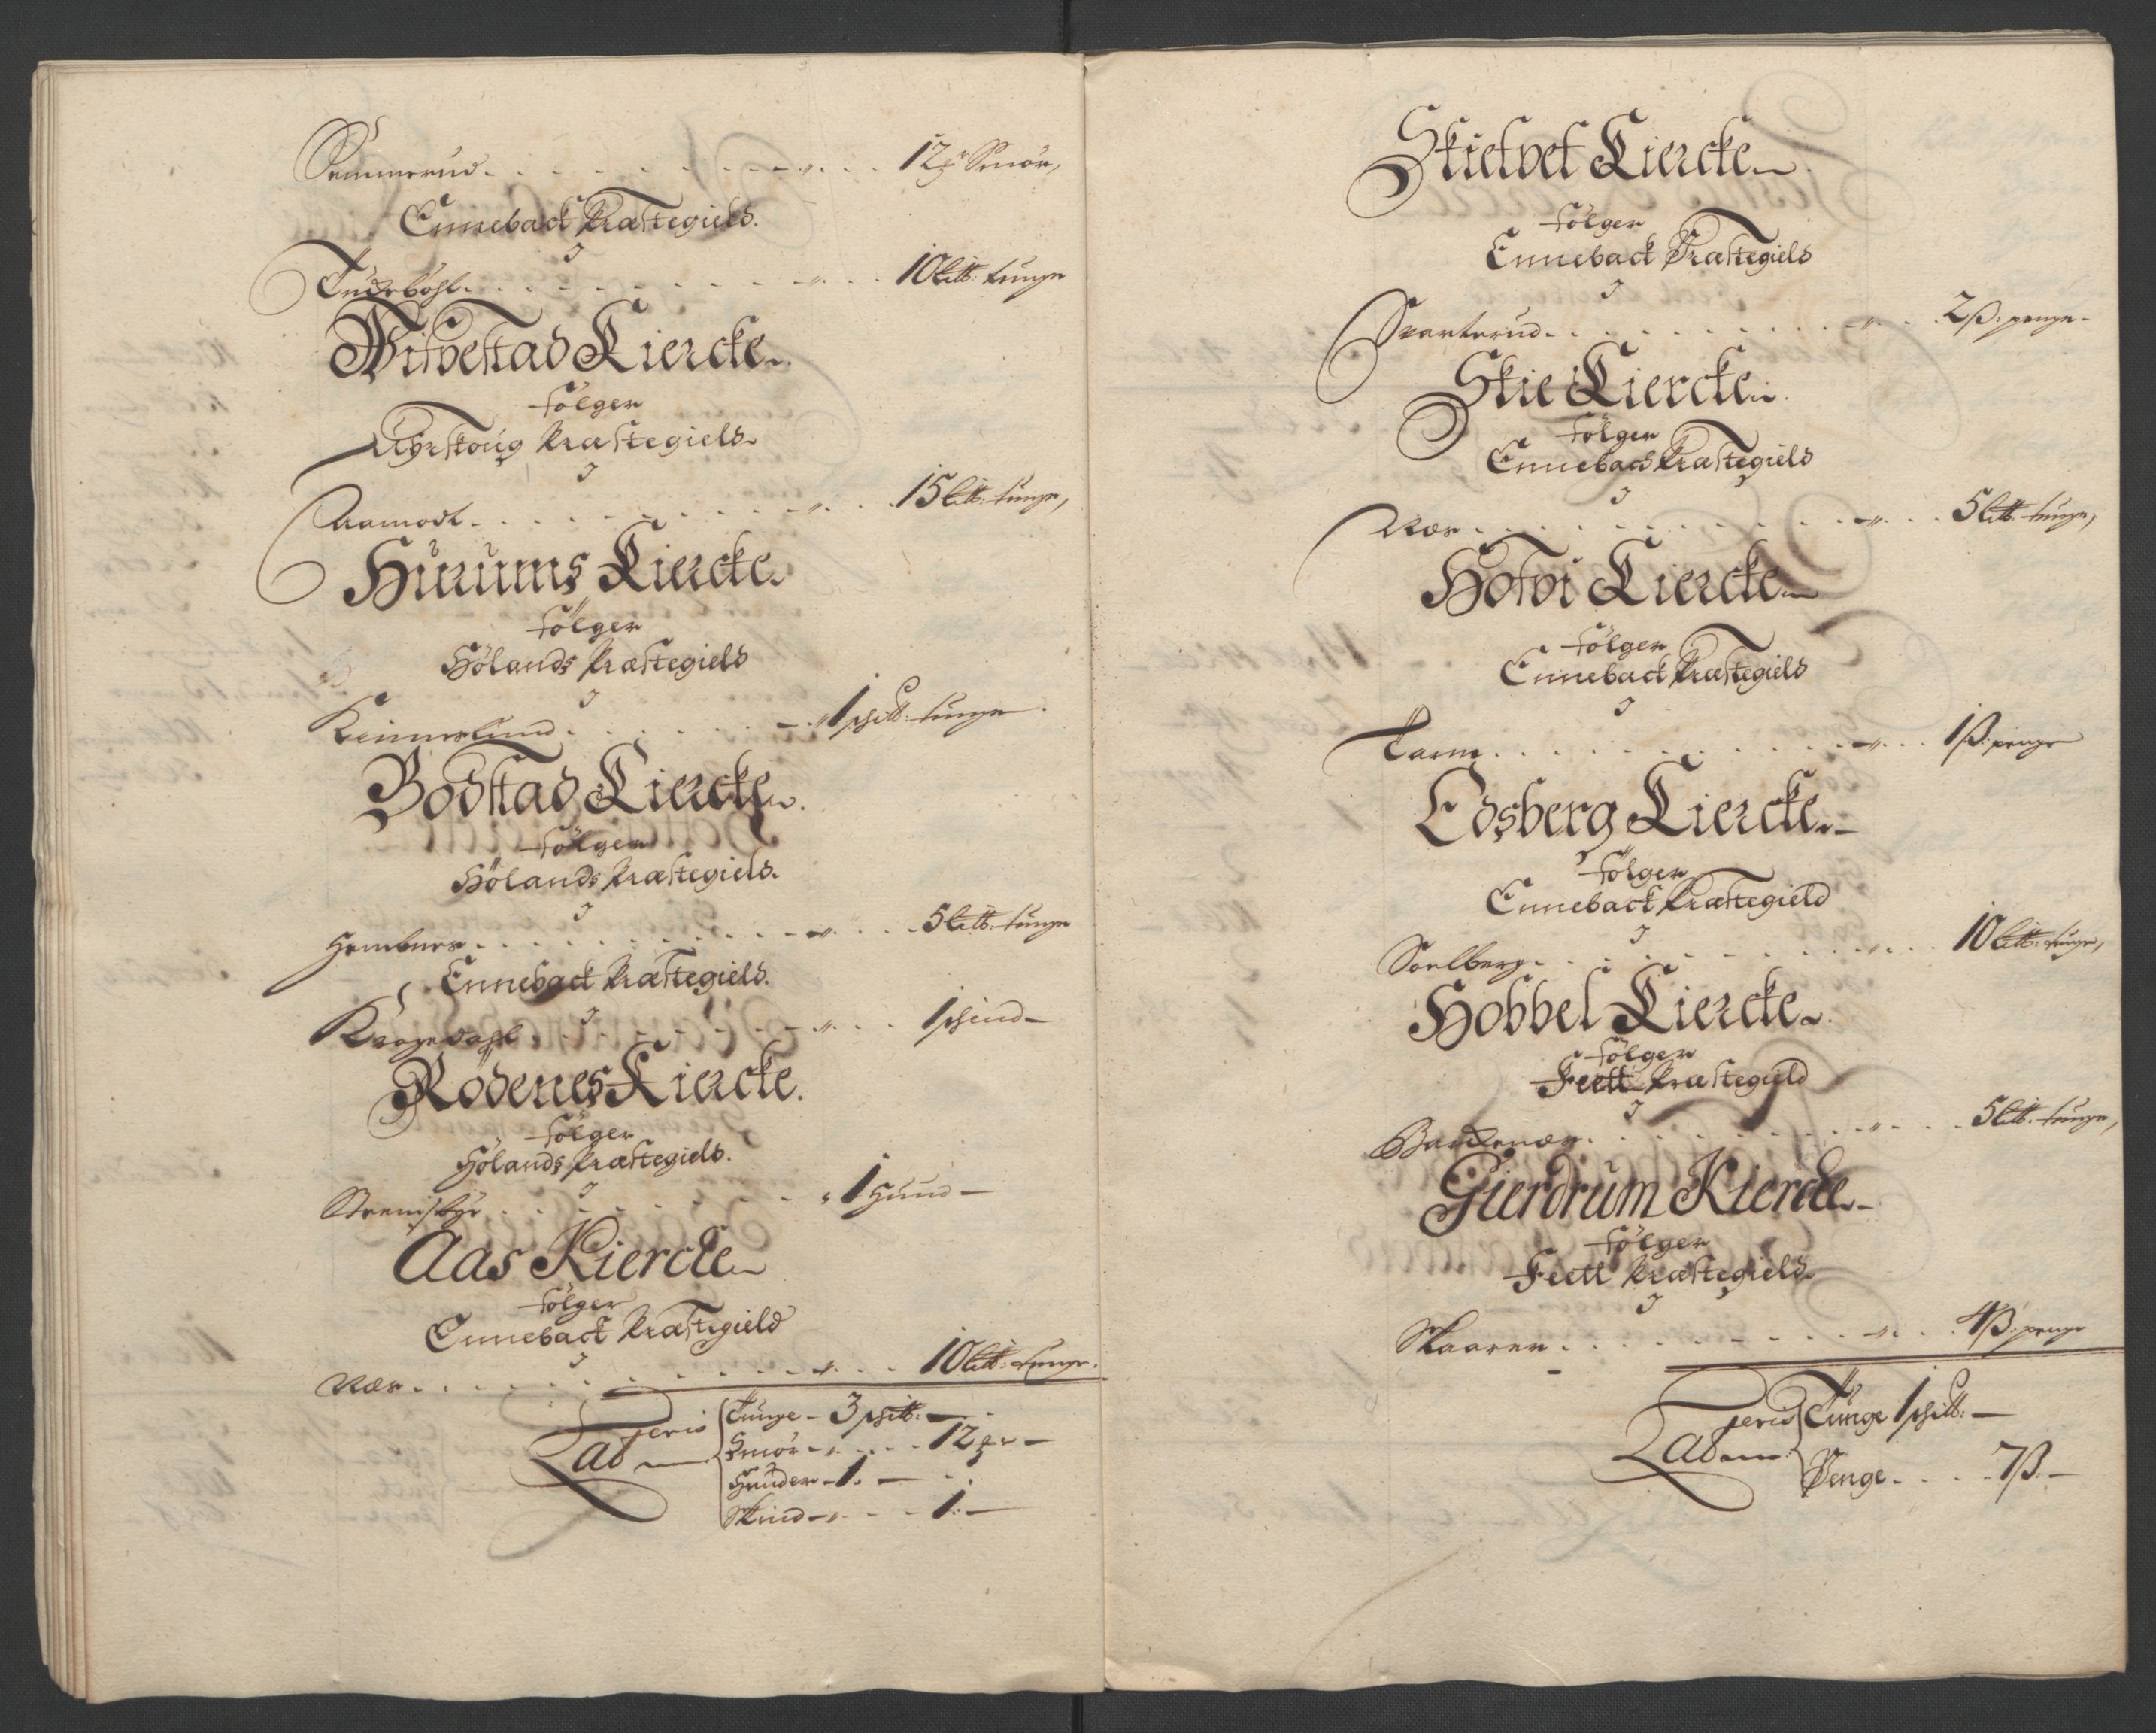 Semmerud . . . . . 12 Smör,
Enneback Præstegield.
I
Tudebøhl . . . . . 10 Lttb: tunge
Witvestad Kiercke
følger
Uhrskoug Præstegield
I
Aamodt . . . . . 15 Lttb: tunge,
Hurums Kiercke
følger
Hølands Præstegield
I
Kinnerlund . . . . . 1 skttb: tunge.
Bodstad Kiercke
følger
Hølands Præstegield.
I
Hembner . . . . . 5 Lttb: tunge
Enneback Præstegield.
I
Kragedahl . . . . . 1 skind
Rødenes Kiercke.
følger
Hølands Præstegield.
I
. . . . . 1 Huud
Aas Kiercke
følger
Enneback Præstegield
I
Næs . . . . . 10 Lttb: tunge.
Lateris Tunge - 3 skttb:
Smör . . . . 12
Huuder - 1.
Skind . . . 1.
Skietvet Kiercke
følger
Enneback Præstegield
I
Svarterud . . . . . 2 ß: penge.
Skie Kiercke
følger
Enneback Præstegield
I
Næs . . . . . 5 Lttb: tunge,
Hofvi Kiercke
følger
Enneback Præstegield
I
Tarm . . . . . 1 ß: penge
Edsberg Kiercke
følger
Enneback Præstegield
I
Soelberg . . . . . 10 Lttb: tunge,
Hobbel Kiercke
følger
Feett Præstegield
I
. . . . . 5 Lttb: tunge,
Gierdrum Kiercke
følger
Feett Præstegield
I
Skaaren . . . . . 4 ß: penge
Lateris Tunge 1 skttb:
Penge . . . . 7 ß.